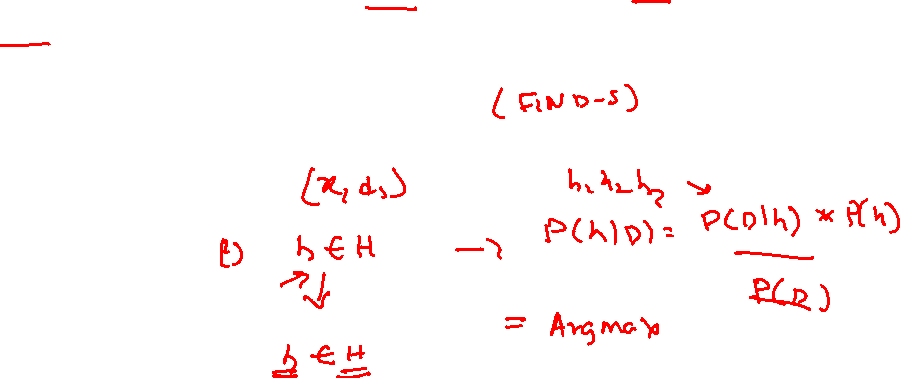 (FIND-S)
(x, d,) h₁ h₂ h₃
h ∈ H → P(h|D) = P(D|h) * P(h)
P(D)
= Argmax
h ∈ H